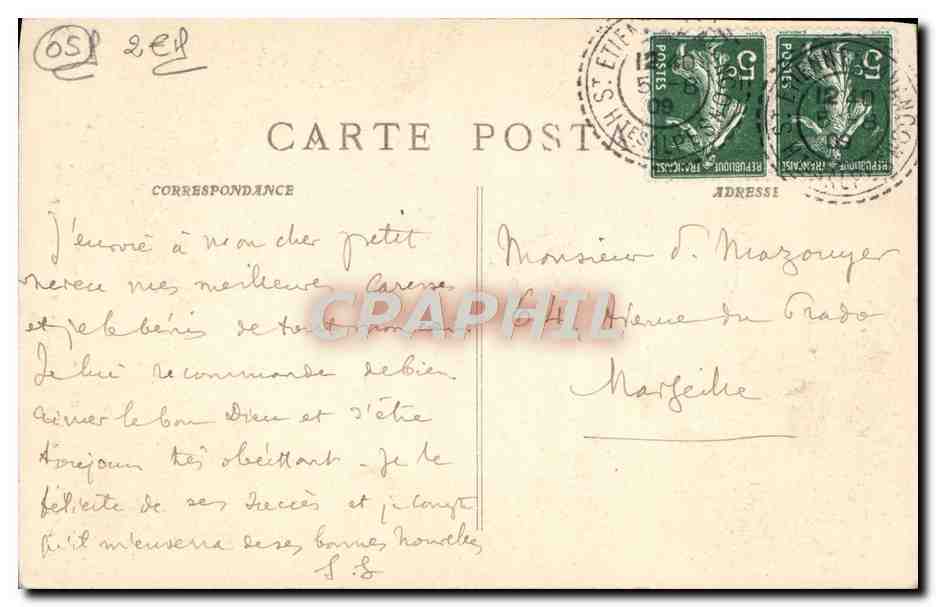 05 2€
ST ETIENNE
12 40
5 - 8
09
HTES ALPES
5c
POSTES
REPUBLIQUE FRANÇAISE
5c
POSTES
REPUBLIQUE FRANÇAISE
12 40
5 8
09
CARTE POSTALE
CORRESPONDANCE
J'envoie à mon cher petit
neveu mes meilleures caresses
et je le bénis de tout mon cœur
Je lui recommande de bien
aimer le bon Dieu et d'être
toujours très obéissant. Je le
félicite de ses succès et je compte
qu'il m'enverra de ses bonnes nouvelles
ADRESSE
Monsieur d. Mazouyer
64, Avenue du Prado
Marseille
CRAPHIL